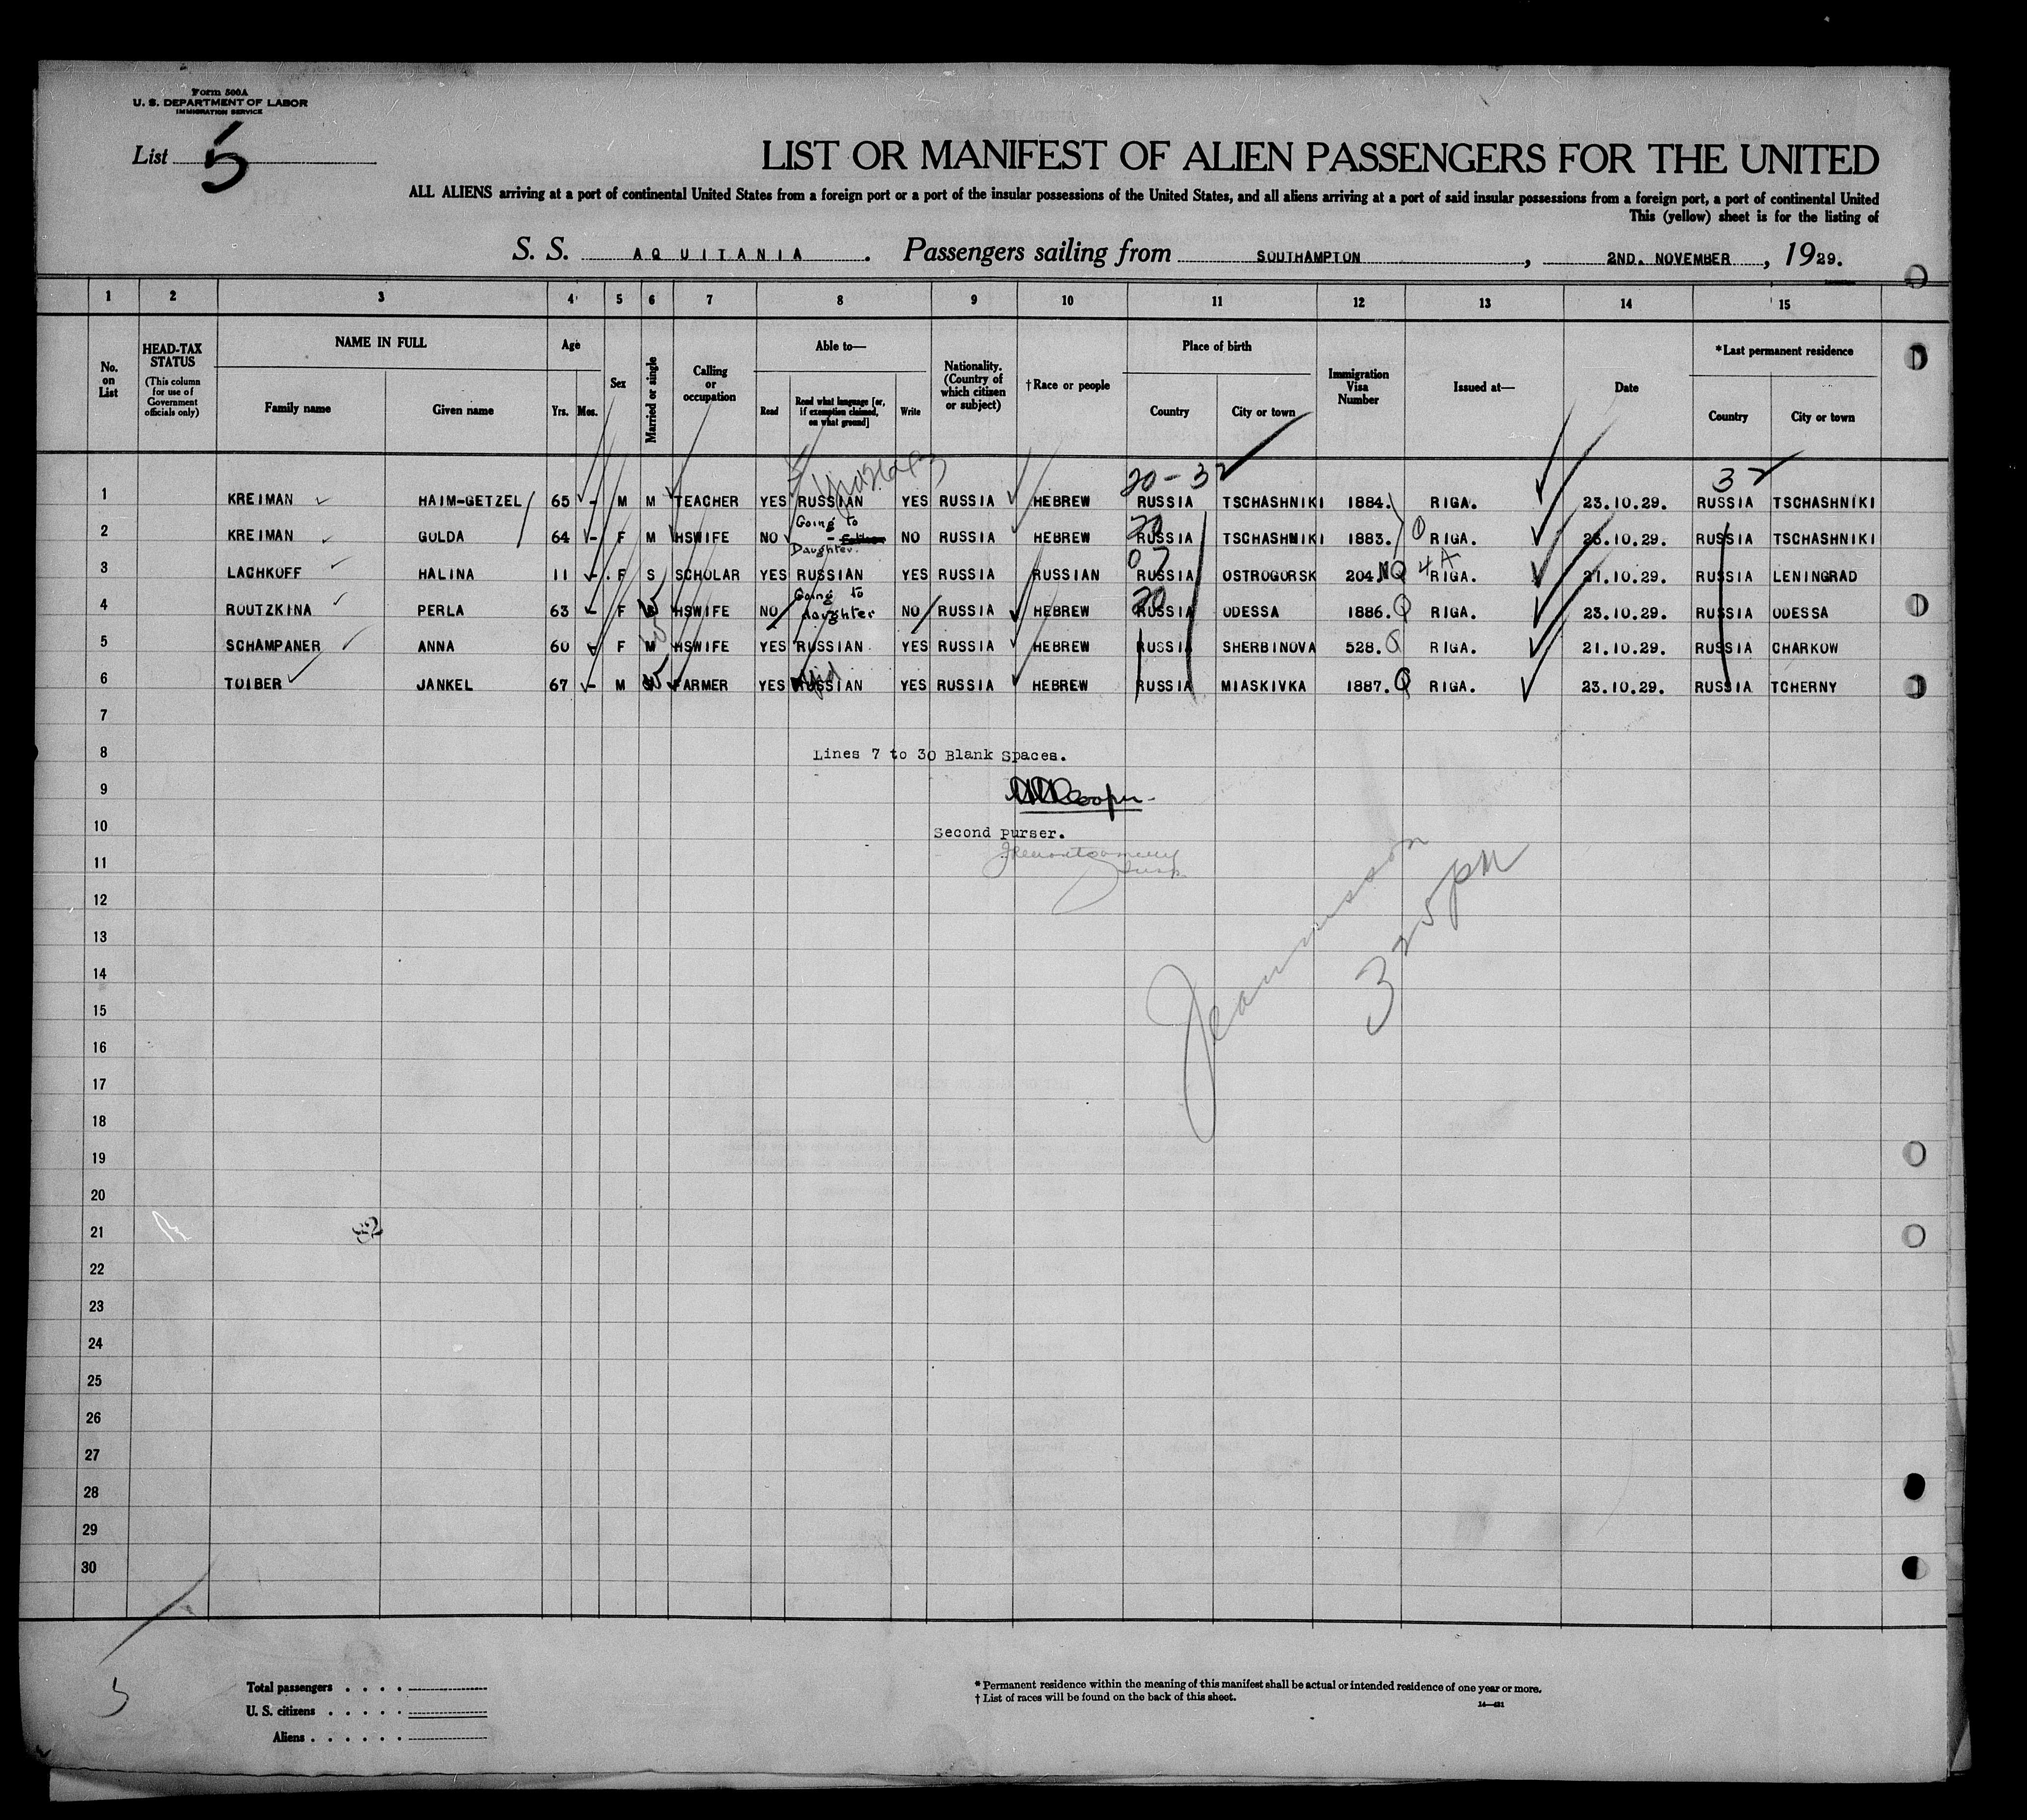 Form 500A
U. S. DEPARTMENT OF LABOR
IMMIGRATION SERVICE
List 5
LIST OR MANIFEST OF ALIEN PASSENGERS FOR THE UNITED
ALL ALIENS arriving at a port of continental United States from a foreign port or a port of the insular possessions of the United States, and all aliens arriving at a port of said insular possessions from a foreign port, a port of continental United
This (yellow) sheet is for the listing of
S. S. AQUITANIA. Passengers sailing from SOUTHAMPTON, 2ND. NOVEMBER, 1929.
1 2 3 4 5 6 7 8 9 10 11 12 13 14 15
No. on List
HEAD-TAX STATUS
(This column for use of Government officials only)
NAME IN FULL
Family name Given name
Age
Yrs. Mos.
Sex
Married or single
Calling or occupation
Able to—
Read
Read what language [or, if exemption claimed, on what ground]
Write
Nationality. (Country of which citizen or subject)
†Race or people
Place of birth
Country City or town
Immigration Visa Number
Issued at—
Date
*Last permanent residence
Country City or town
20-32 32
1 KREIMAN HAIM-GETZEL 65 - M M TEACHER YES RUSSIAN YES RUSSIA HEBREW RUSSIA TSCHASHNIKI 1884. RIGA. 23.10.29. RUSSIA TSCHASHNIKI
Going to
2 KREIMAN GOLDA 64 - F M HSWIFE NO - NO RUSSIA HEBREW 20 RUSSIA TSCHASHNIKI 1883. Q RIGA. 23.10.29. RUSSIA TSCHASHNIKI
Daughter.
3 LACHKOFF HALINA 11 - F S SCHOLAR YES RUSSIAN YES RUSSIA RUSSIAN 07 RUSSIA OSTROGORSK 204. NQ 4A RIGA. 21.10.29. RUSSIA LENINGRAD
Going to
4 ROUTZKINA PERLA 63 - F W HSWIFE NO daughter NO RUSSIA HEBREW 20 RUSSIA ODESSA 1886. Q RIGA. 23.10.29. RUSSIA ODESSA
5 SCHAMPANER ANNA 60 - F M W HSWIFE YES RUSSIAN YES RUSSIA HEBREW RUSSIA SHERBINOVA 528. Q RIGA. 21.10.29. RUSSIA CHARKOW
6 TOIBER JANKEL 67 - M W FARMER YES RUSSIAN Yid YES RUSSIA HEBREW RUSSIA MIASKIVKA 1887. Q RIGA. 23.10.29. RUSSIA TCHERNY
7
8 Lines 7 to 30 Blank Spaces.
9 Cooper
10 Second Purser.
11
12
13
14
15
3 25 PM
16
17
18
19
20
21
22
23
24
25
26
27
28
29
30
5
Total passengers
U. S. citizens
Aliens
* Permanent residence within the meaning of this manifest shall be actual or intended residence of one year or more.
† List of races will be found on the back of this sheet.
14—421